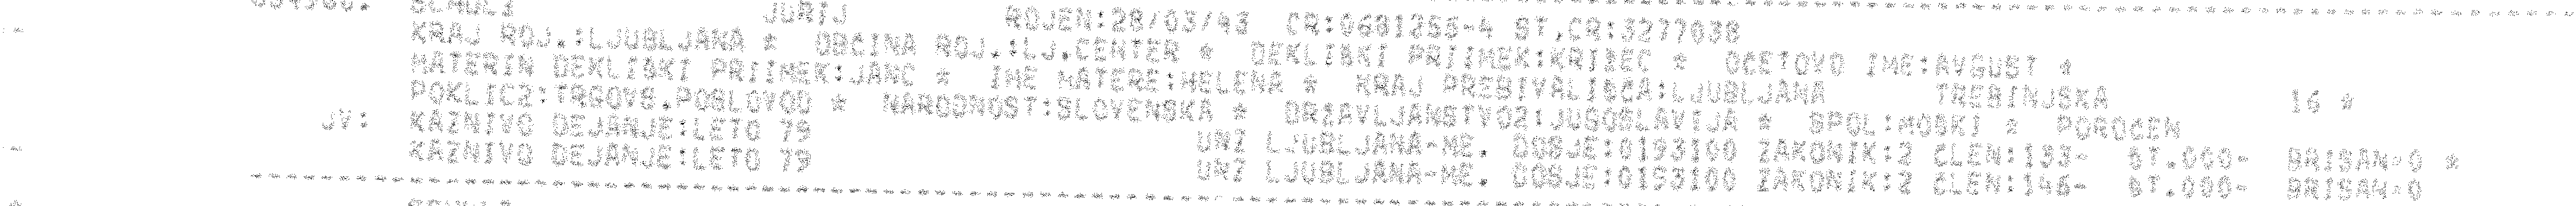 JURIJ ROJEN:28/03/43 CR:0681255-4 ST,CR:3277038
KRAJ ROJ.:LJUBLJANA * OBCINA ROJ.:LJ.CENTER * DEKLISKI PRIIMEK:KRIZEC * OCETOVO IME:AVGUST *
MATERIN DEKLISKI PRIIMEK:JANC * IME MATERE:HELENA * KRAJ PREBIVALISCA:LJUBLJANA TREBINJSKA 16 *
POKLIC2:TRGOVS.POSLOVOD * NARODNOST:SLOVENSKA * DRZAVLJANSTVO2:JUGOSLAVIJA * SPOL:MOSKI * POROCEN
JV: KAZNIVO DEJANJE:LETO 79 UNZ LJUBLJANA-ME. DOSJE:0193100 ZAKONIK:2 CLEN:133- ST.000- BRISAN-0 *
KAZNIVO DEJANJE:LETO 79 UNZ LJUBLJANA-ME. DOSJE:0193100 ZAKONIK:2 CLEN:146- ST.000- BRISAN-0